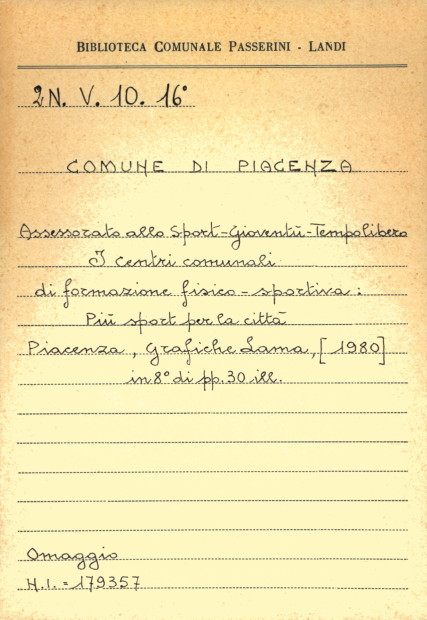 BIBLIOTECA COMUNALE PASSERINI - LANDI
2N. V. 10. 16°
COMUNE DI PIACENZA
Assessorato allo Sport-Gioventù-Tempolibero
I centri comunali
di formazione fisico-sportiva:
Più sport per la città
Piacenza, Grafiche Lama, [1980]
in 8° di pp. 30 ill.
Omaggio
N.I. = 179357